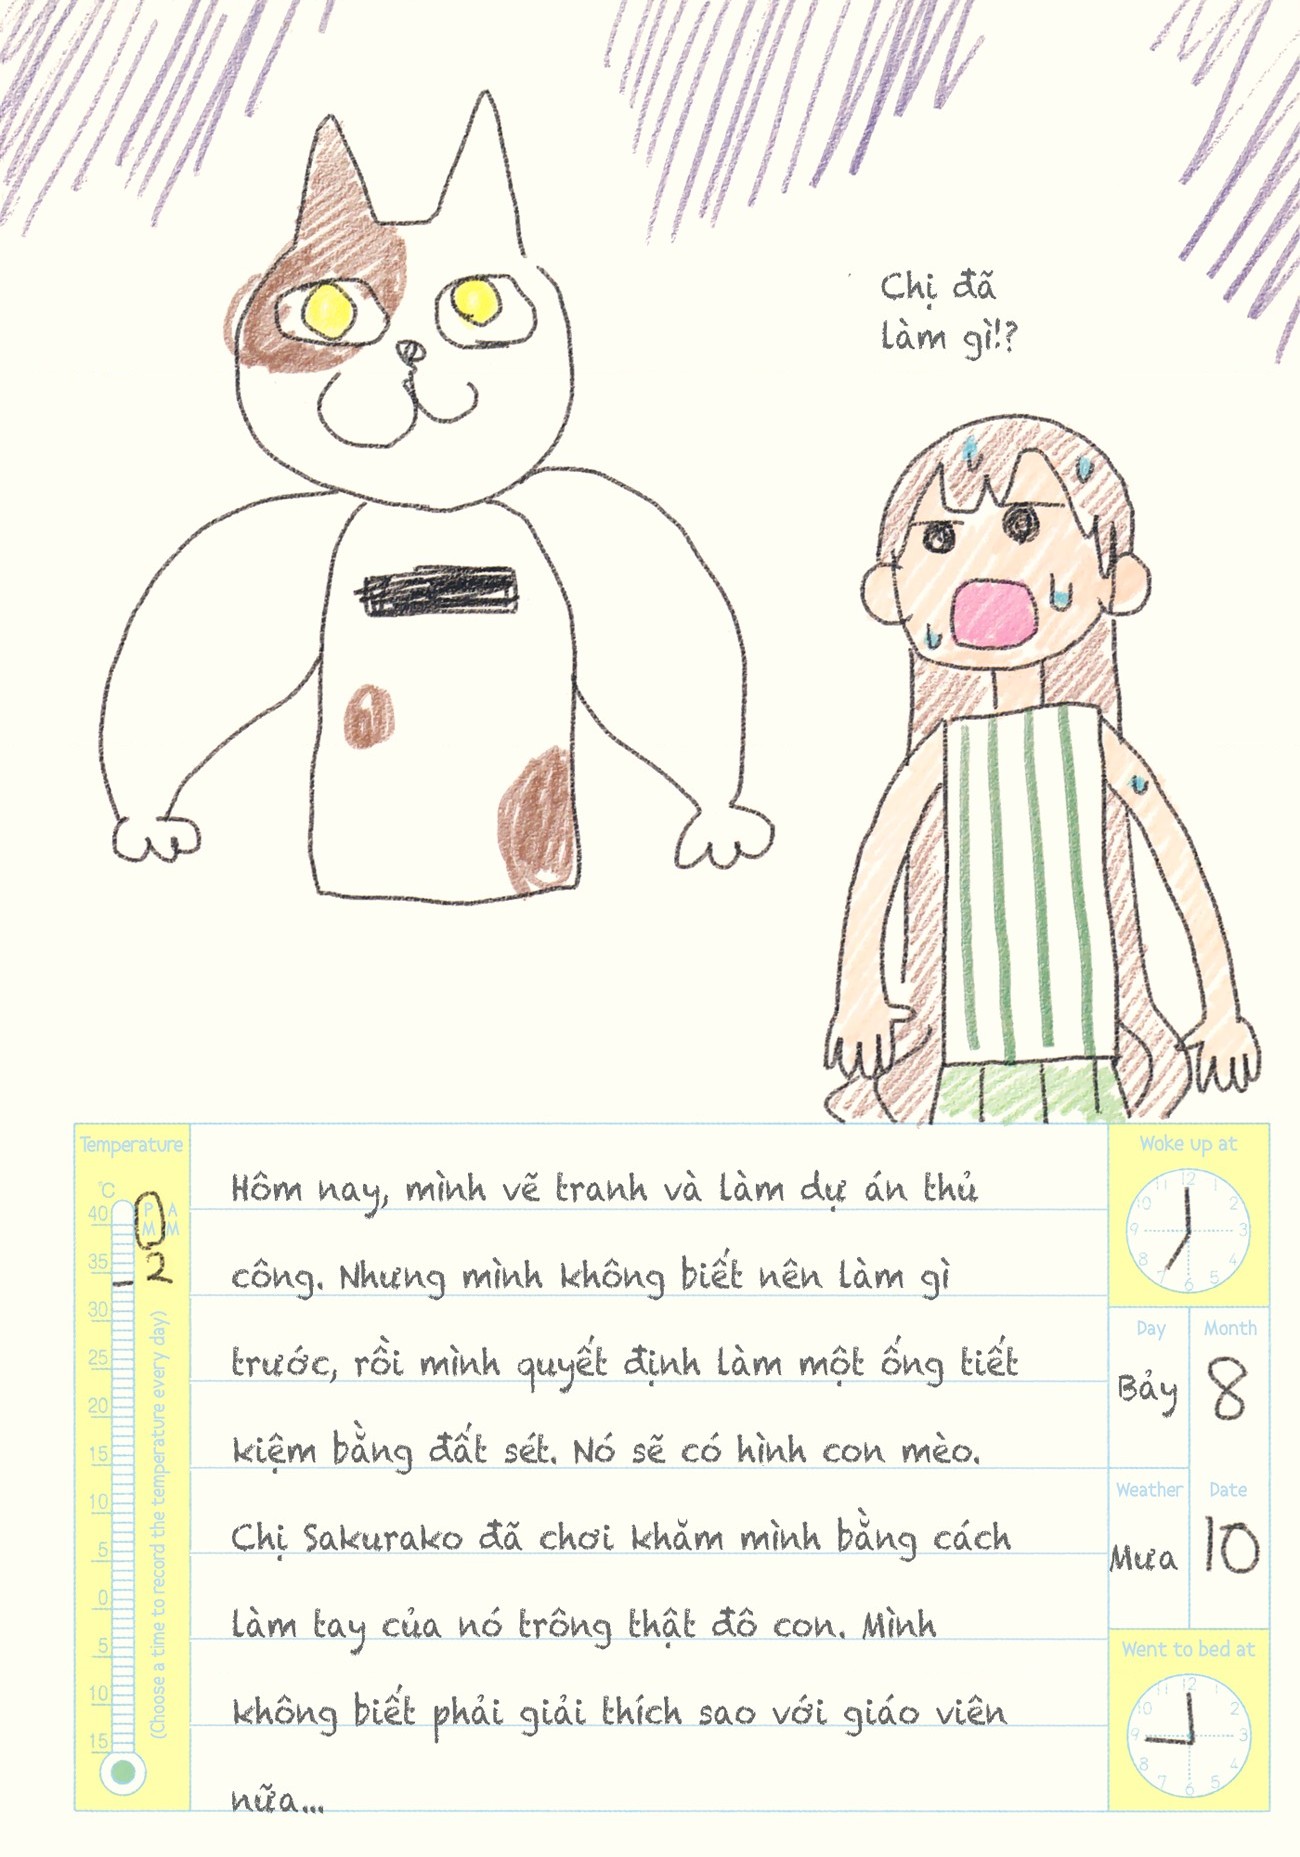 Chị đã
làm gì!?
Temperature
°C
40
35
30
25
20
15
10
5
0
5
10
15
P A
M M
2
(Choose a time to record the temperature every day)
Hôm nay, mình vẽ tranh và làm dự án thủ
công. Nhưng mình không biết nên làm gì
trước, rồi mình quyết định làm một ống tiết
kiệm bằng đất sét. Nó sẽ có hình con mèo.
Chị Sakurako đã chơi khăm mình bằng cách
làm tay của nó trông thật đô con. Mình
không biết phải giải thích sao với giáo viên
nữa...
Woke up at
12 1 2 3 4 5 6 7 8 9 10
Day
Bảy
Month
8
Weather
Mưa
Date
10
Went to bed at
12 1 2 3 4 5 6 7 8 9 10